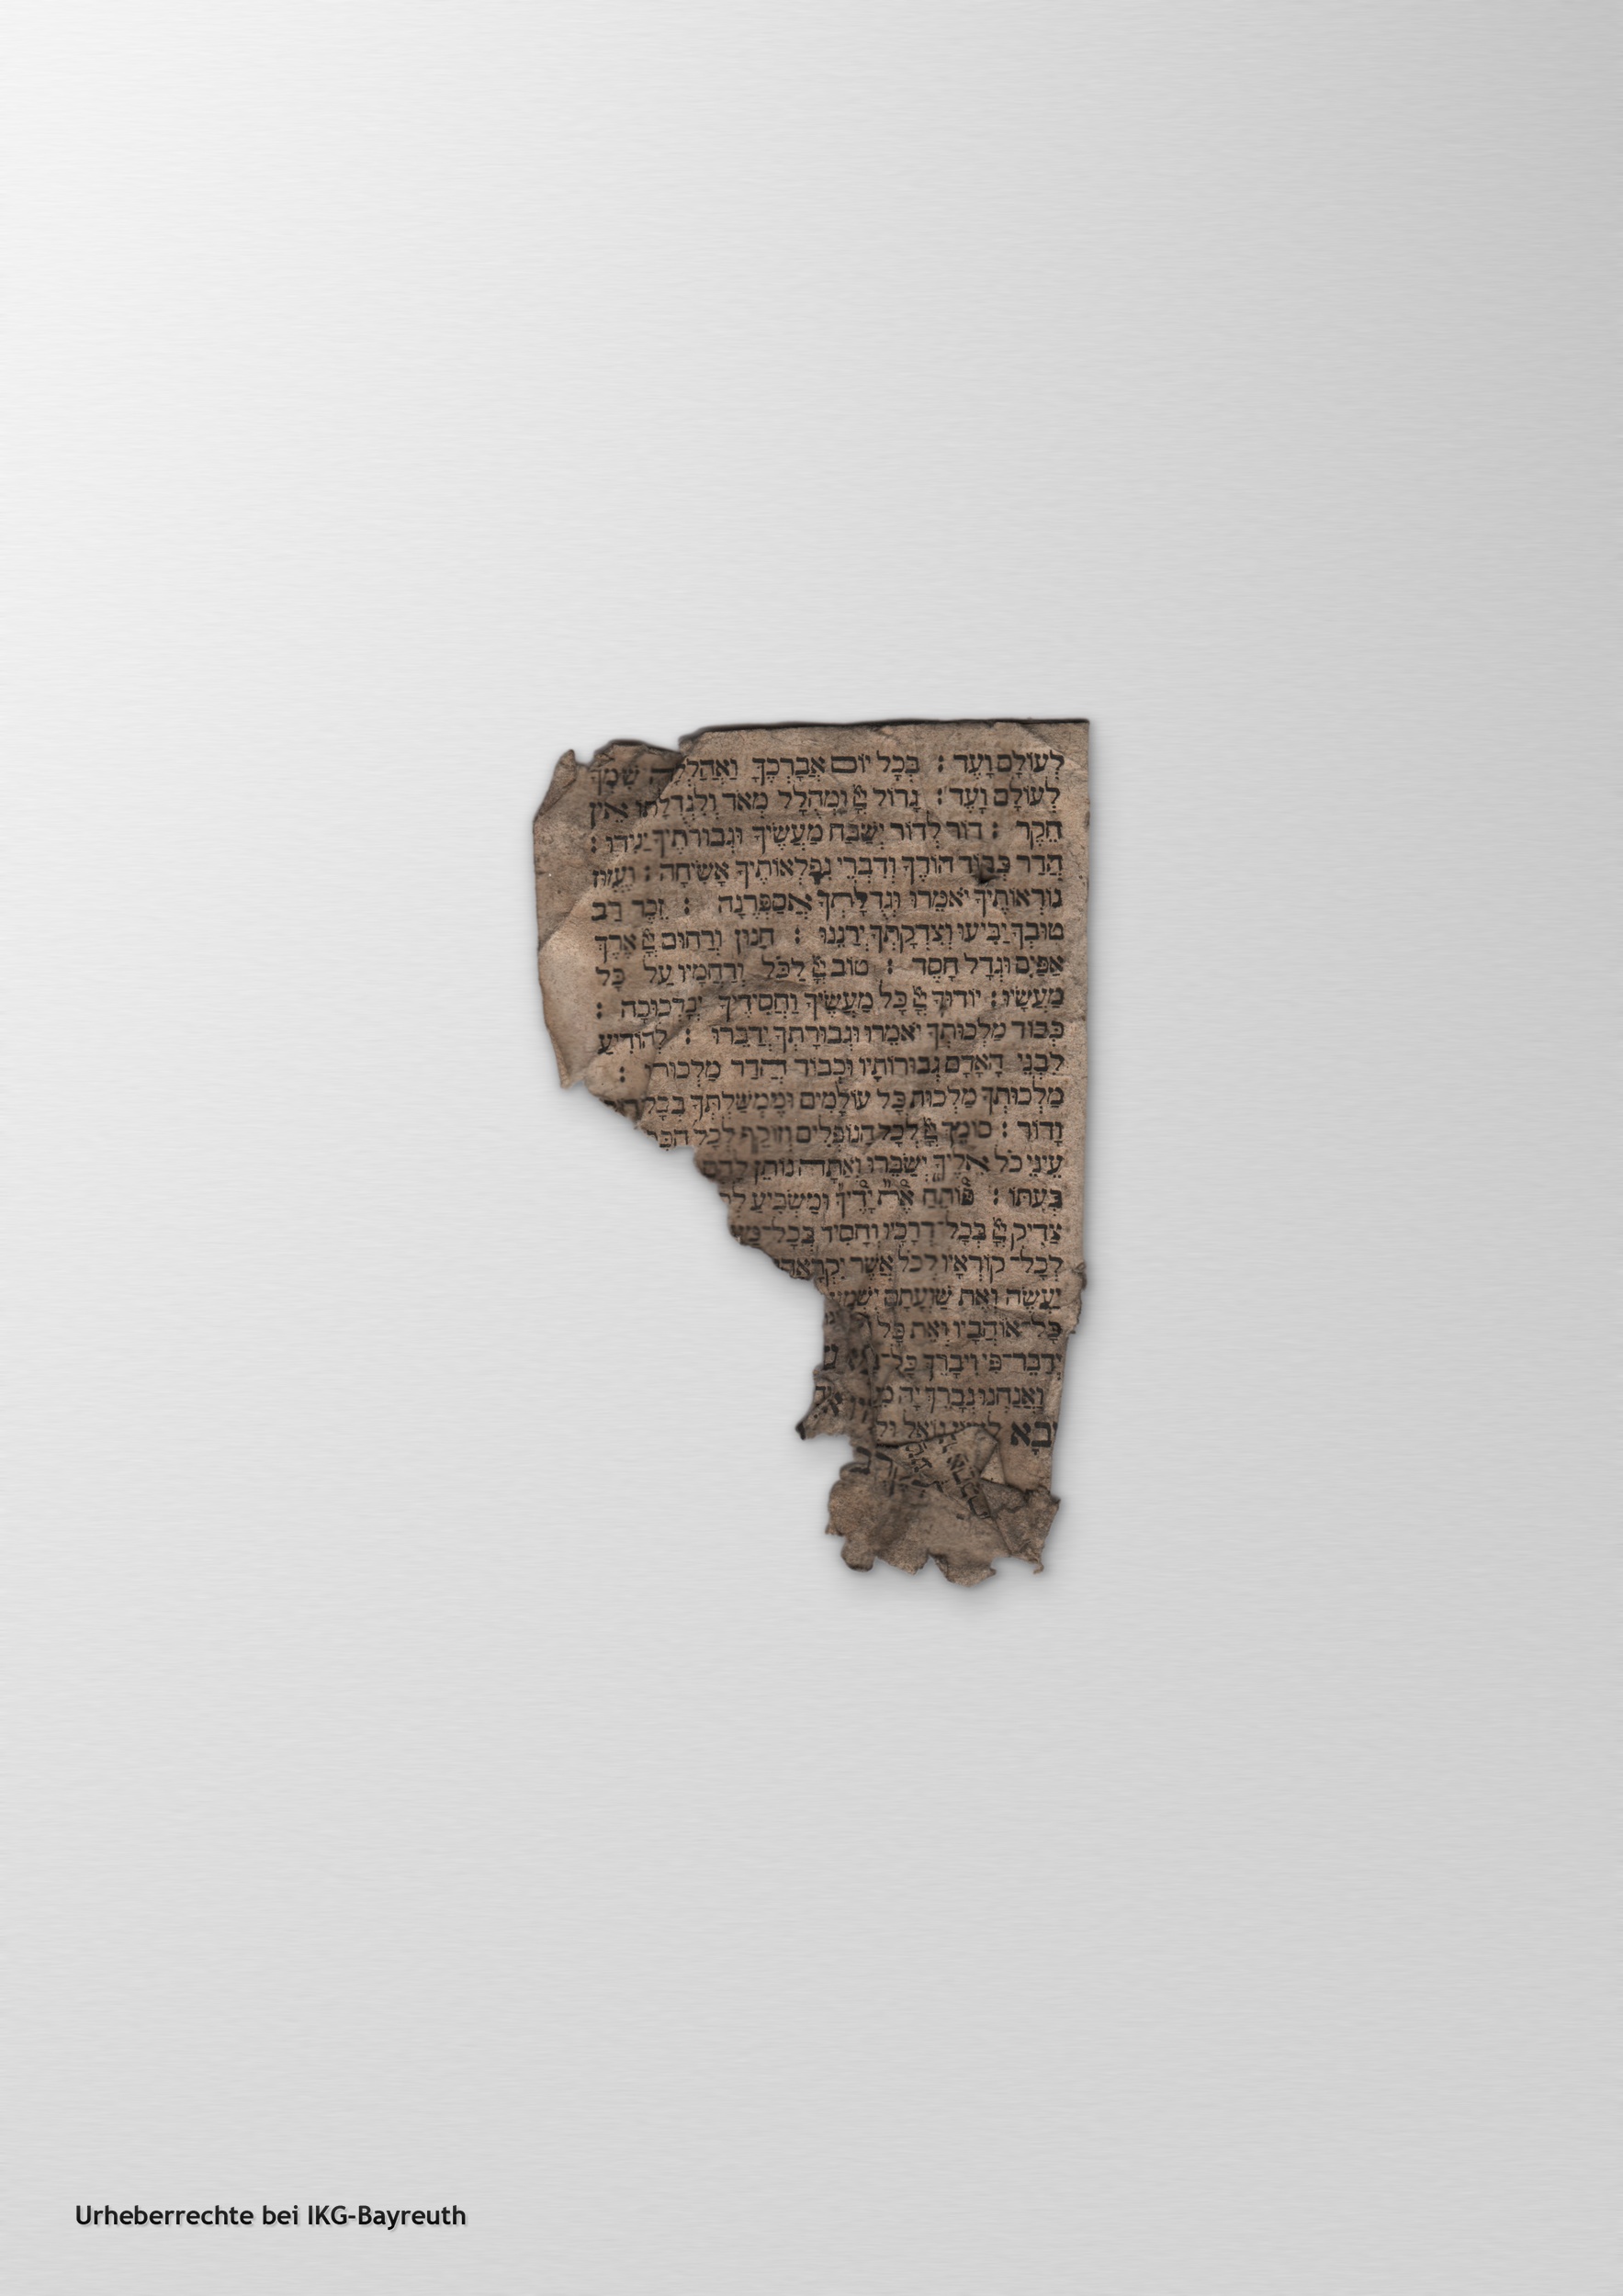 לְעוֹלָם וָעֶד : בְּכָל יוֹם אֲבָרְכֶךָּ וַאֲהַלְלָה שִׁמְךָ
לְעוֹלָם וָעֶד : גָּדוֹל יְיָ וּמְהֻלָּל מְאֹד וְלִגְדֻלָּתוֹ אֵין
חֵקֶר : דּוֹר לְדוֹר יְשַׁבַּח מַעֲשֶׂיךָ וּגְבוּרֹתֶיךָ יַגִּידוּ :
הֲדַר כְּבוֹד הוֹדֶךָ וְדִבְרֵי נִפְלְאוֹתֶיךָ אָשִׂיחָה : וֶעֱזוּז
נוֹרְאוֹתֶיךָ יֹאמֵרוּ וּגְדֻלָּתְךָ אֲסַפְּרֶנָּה : זֵכֶר רַב
טוּבְךָ יַבִּיעוּ וְצִדְקָתְךָ יְרַנֵּנוּ : חַנּוּן וְרַחוּם יְיָ אֶרֶךְ
אַפַּיִם וּגְדָל חָסֶד : טוֹב יְיָ לַכֹּל וְרַחֲמָיו עַל כָּל
מַעֲשָׂיו : יוֹדוּךָ יְיָ כָּל מַעֲשֶׂיךָ וַחֲסִידֶיךָ יְבָרְכוּכָה :
כְּבוֹד מַלְכוּתְךָ יֹאמֵרוּ וּגְבוּרָתְךָ יְדַבֵּרוּ : לְהוֹדִיעַ
לִבְנֵי הָאָדָם גְּבוּרוֹתָיו וּכְבוֹד הֲדַר מַלְכוּתוֹ :
מַלְכוּתְךָ מַלְכוּת כָּל עוֹלָמִים וּמֶמְשַׁלְתְּךָ בְּכָל
וָדוֹר : סוֹמֵךְ יְיָ לְכָל הַנּוֹפְלִים וְזוֹקֵף לְכָל
עֵינֵי כֹל אֵלֶיךָ יְשַׂבֵּרוּ וְאַתָּה נוֹתֵן לָהֶם
בְּעִתּוֹ : פּוֹתֵחַ אֶת יָדֶיךָ וּמַשְׂבִּיעַ
צַדִּיק יְיָ בְּכָל־דְּרָכָיו וְחָסִיד בְּכָל־
לְכָל־ קוֹרְאָיו לְכֹל אֲשֶׁר
יַעֲשֶׂה וְאֶת שַׁוְעָתָם
כָּל־אוֹהֲבָיו וְאֵת כָּל
יְדַבֶּר־פִּי וִיבָרֵךְ כָּל־
וַאֲנַחְנוּ נְבָרֵךְ יָהּ
וּבָא
Urheberrechte bei IKG-Bayreuth